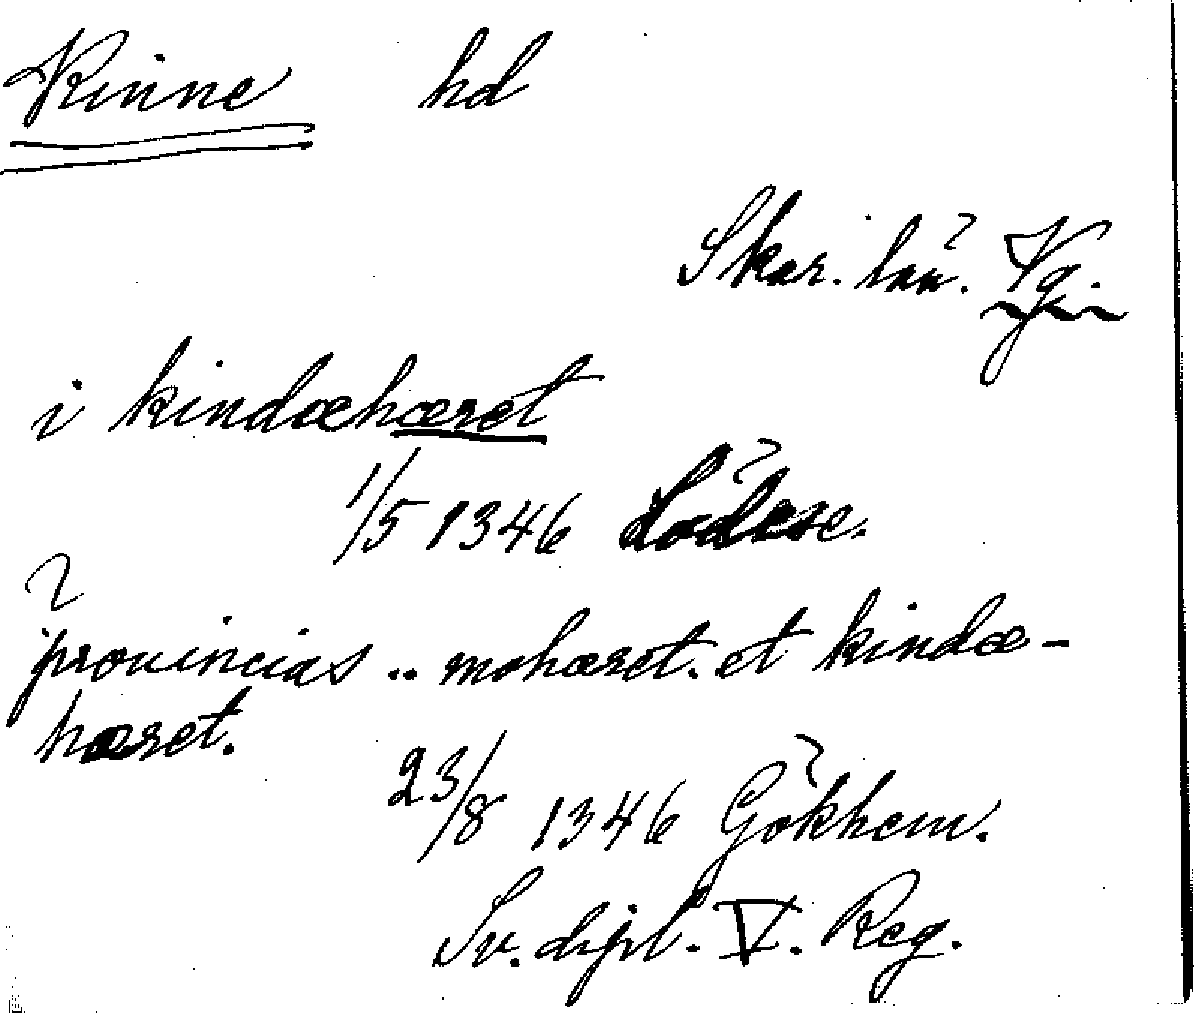 Kinne hd
Skar. län. Vg.
i kindæhæret
1/5 1346 Lödese.
provincias .. mohæret. et kindæ-
hæret.
23/8 1346 Gökhem.
Sv. dipl. V. Reg.